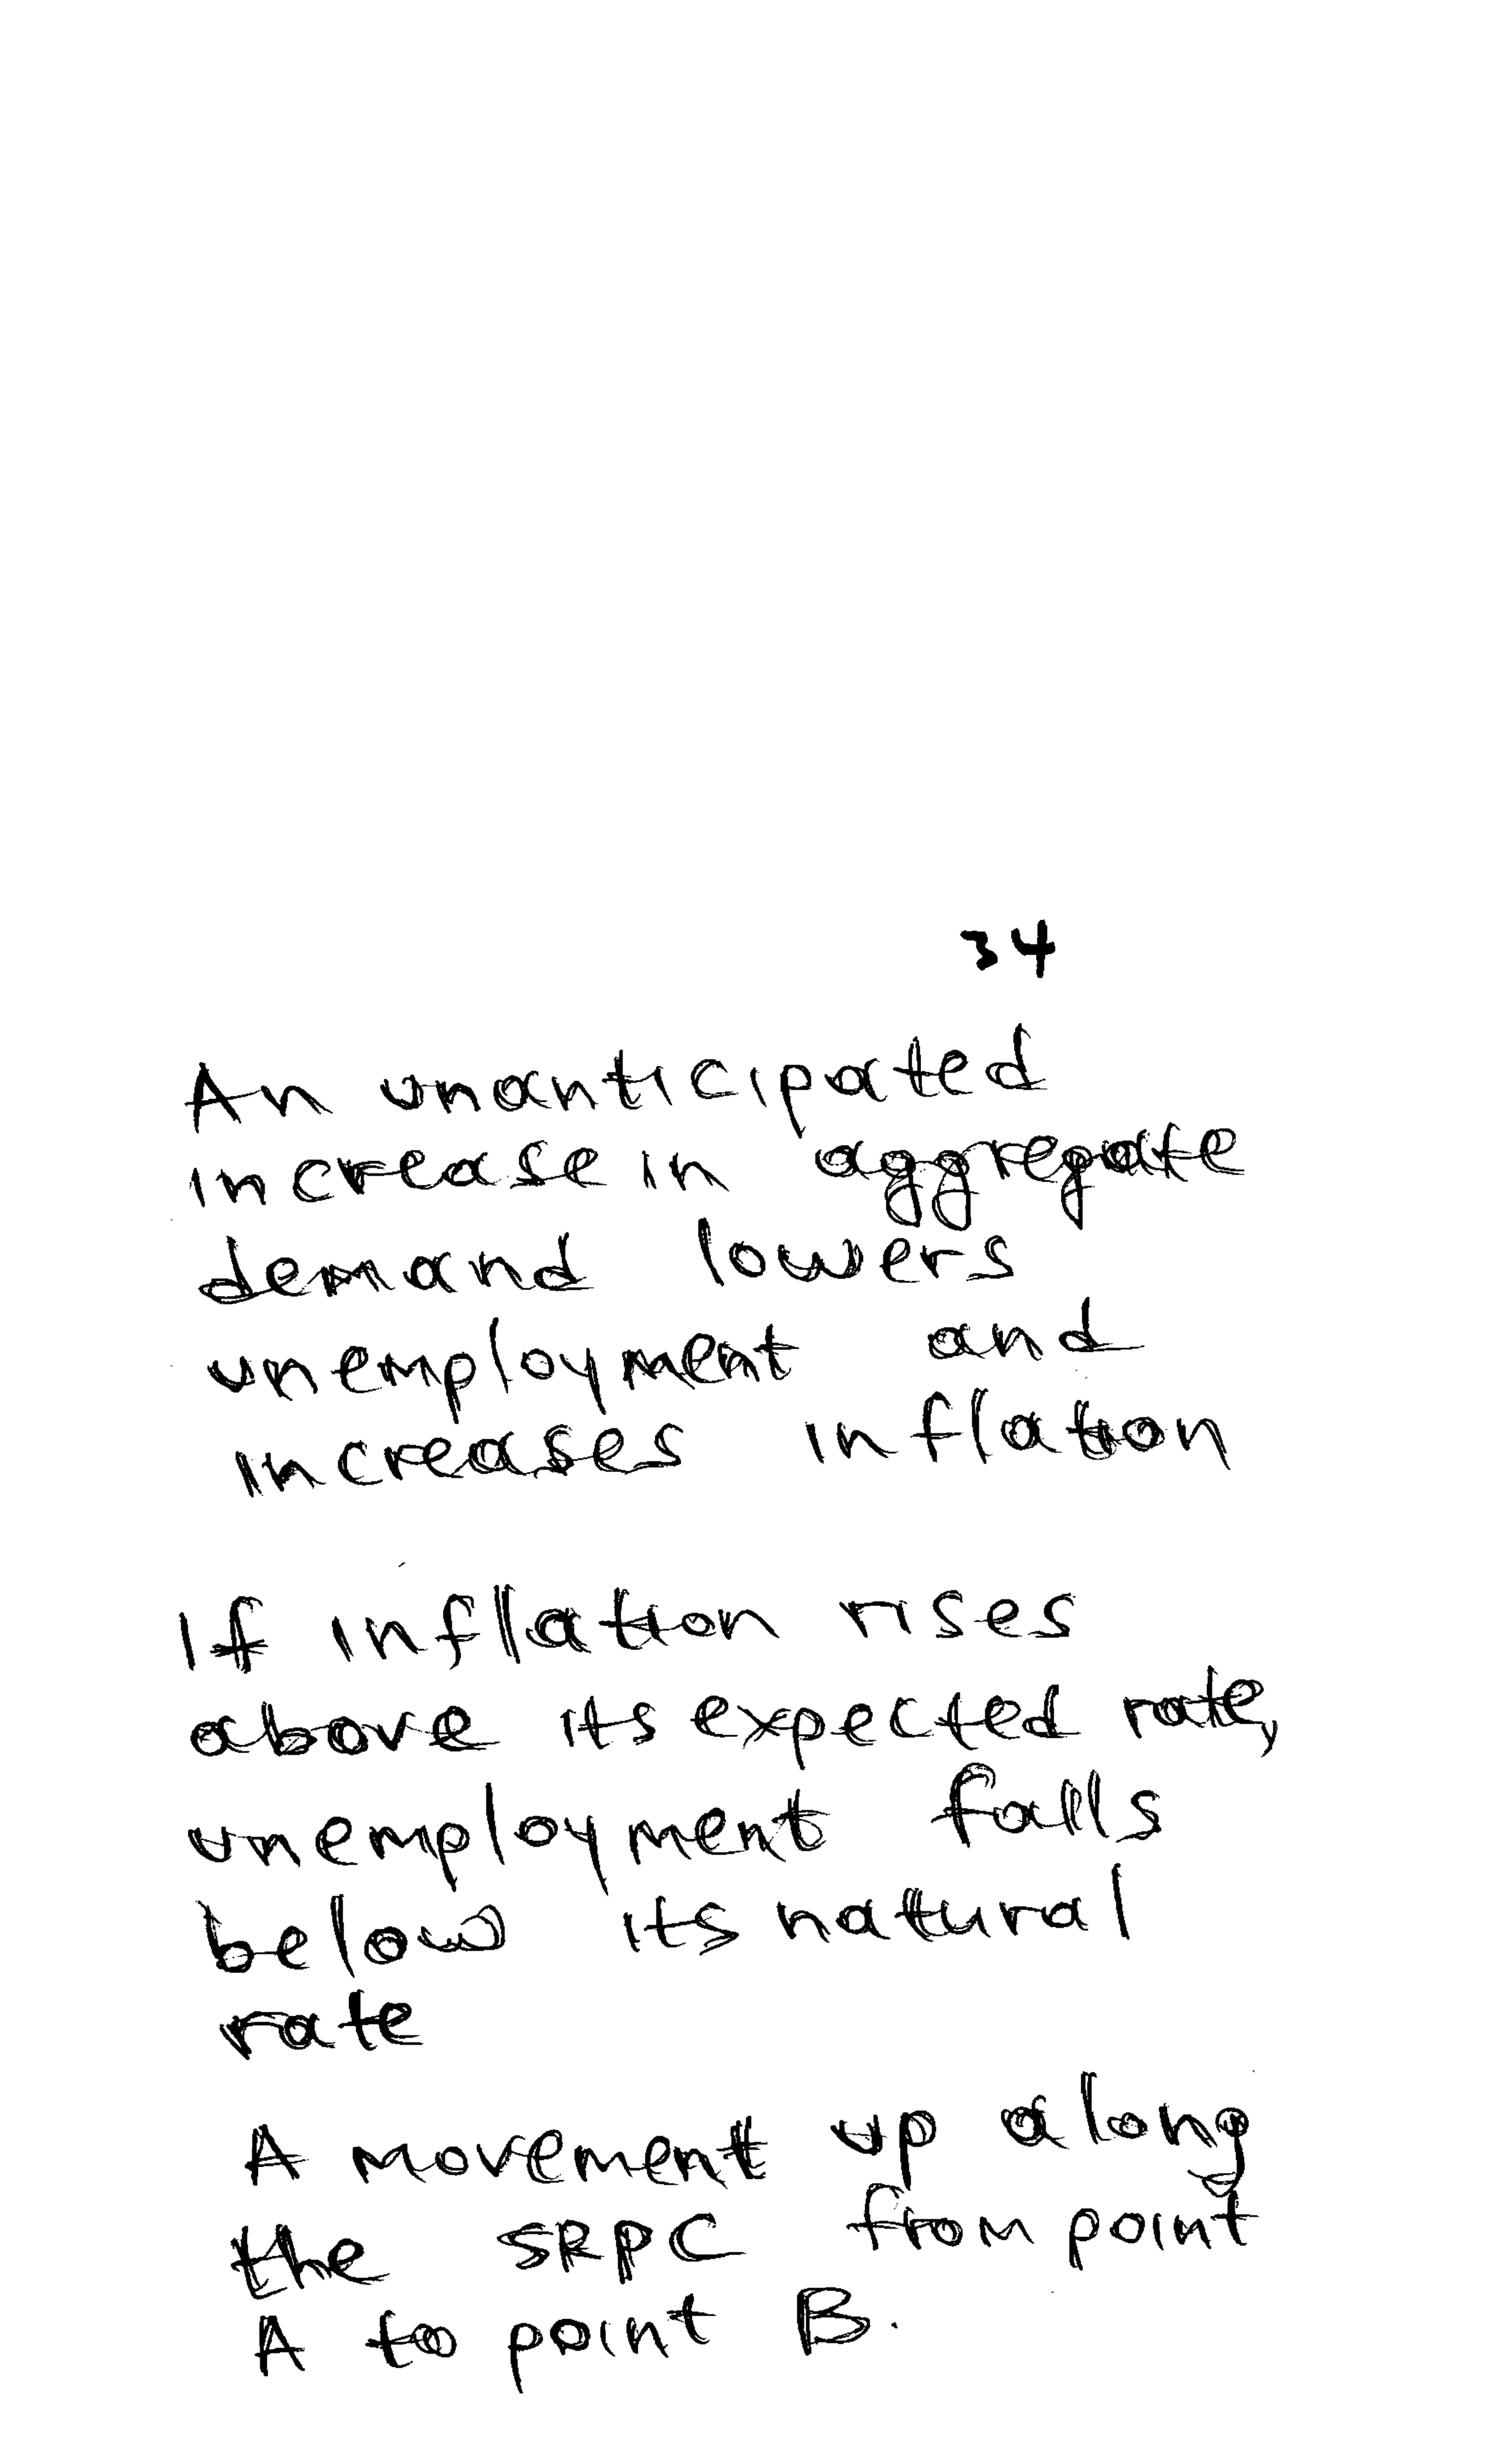 34
An unanticipated
increase in aggregate
demand lowers
unemployment and
increases inflation
If inflation rises
above its expected rate,
unemployment falls
below its natural
rate
A movement up along
the SRPC from point
A to point B.